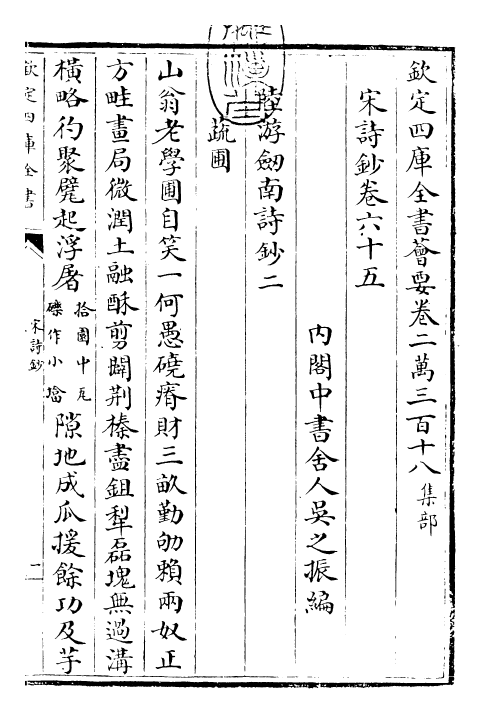 欽定四庫全書薈要卷二萬三百十八集部
宋詩鈔卷六十五
內閣中書舍人吳之振編
陸游劒南詩鈔二
蔬圃
山翁老學圃自笑一何愚磽瘠財三畝勤劬賴兩奴正
方畦畫局微潤土融酥剪闢荆榛盡鉏犂磊塊無過溝
橫略彴聚甓起浮屠拾園中瓦礫作小墖隙地成瓜援餘功及芋
欽定四庫全書
宋詩鈔